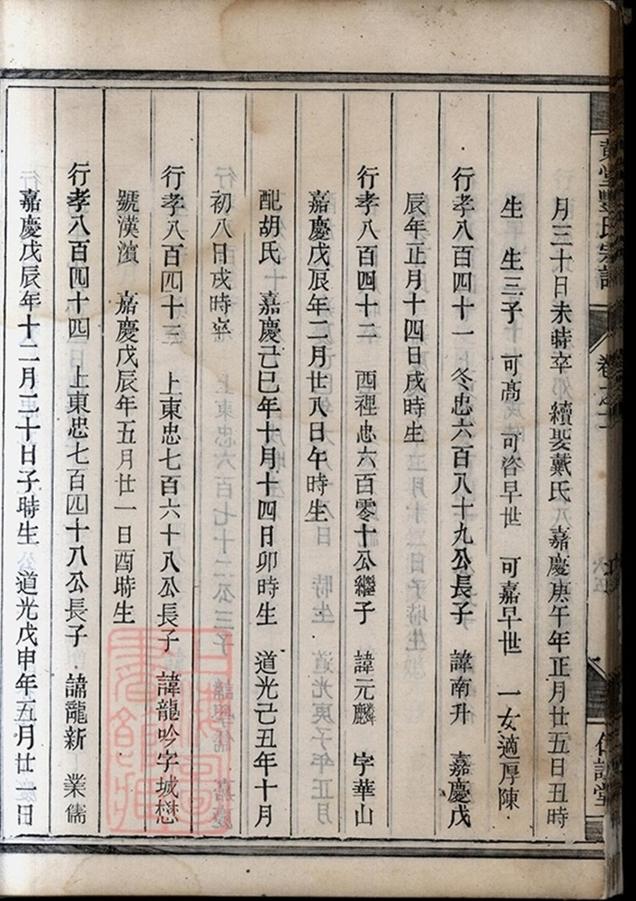 月三十日未時卒 續娶戴氏 嘉慶庚午年正月廿五日丑時
生 生三子 可高 可咨早世 可嘉早世 一女適厚陳
行孝八百四十一 冬忠六百八十九公長子 諱南升 嘉慶戊
辰年正月十四日戌時生
行孝八百四十二 西裡忠六百零十公繼子 諱元麟 字華山
嘉慶戊辰年二月廿八日午時生
配胡氏 嘉慶己巳年十月十四日卯時生 道光己丑年十月
初八日戌時卒
行孝八百四十三 上東忠七百六十八公長子 諱龍吟字城懋
號漢濱 嘉慶戊辰年五月廿一日酉時生
行孝八百四十四 上東忠七百四十八公長子 諱龍新 業儒
嘉慶戊辰年十二月二十日子時生 道光戊申年五月廿一日